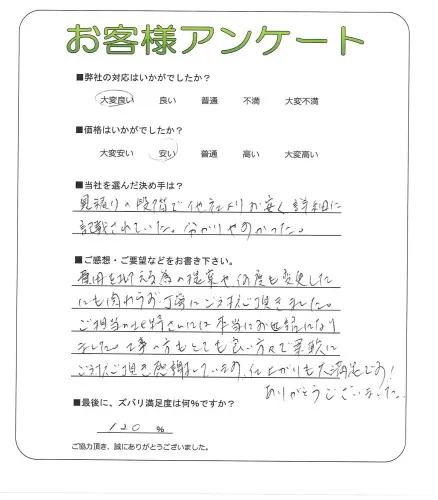 お客様アンケート
■弊社の対応はいかがでしたか？
大変良い 良い 普通 不満 大変不満
■価格はいかがでしたか？
大変安い 安い 普通 高い 大変高い
■当社を選んだ決め手は？
見積りの段階で他社よりお安く詳細に
記載されていた。分かりやすかった。
■ご感想・ご要望などをお書き下さい。
費用を抑える為の提案や何度も変更した
にも関わらずお丁寧にご対応頂きました。
ご担当の さんには本当にお世話になり
ました。工事の方もとても良い方々で柔軟に
ご対応頂き感謝しています。仕上がりも大満足です！
ありがとうございました。
■最後に、ズバリ満足度は何%ですか？
120 %
ご協力頂き、誠にありがとうございました。